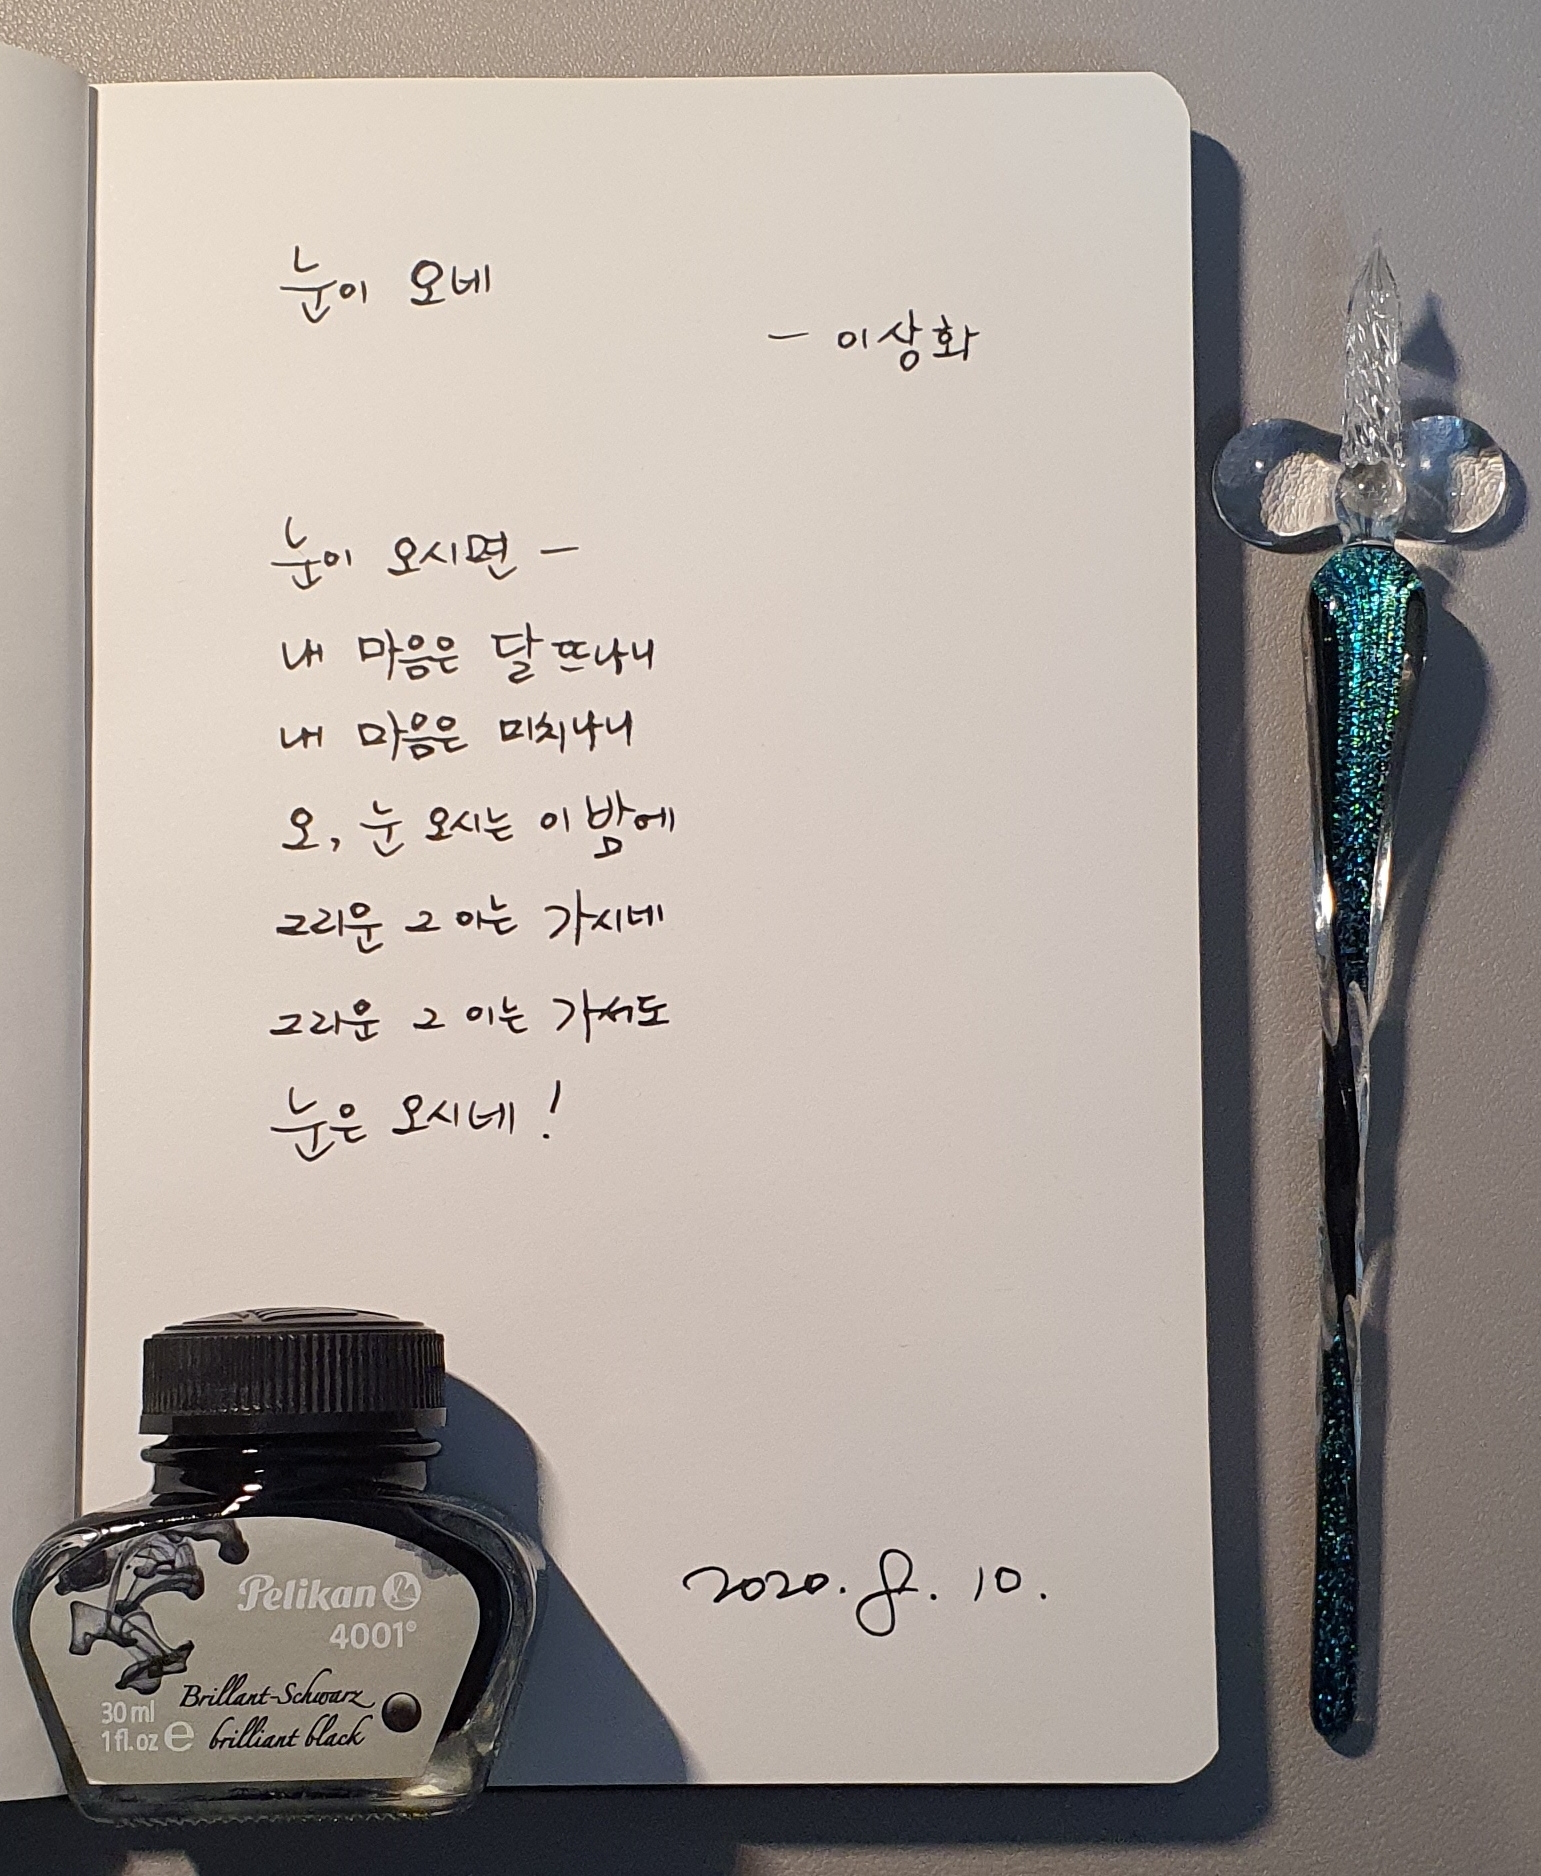 눈이 오네
- 이상화
눈이 오시면 -
내 마음은 달뜨나니
내 마음은 미치나니
오, 눈 오시는 이 밤에
그리운 그 이는 가시네
그리운 그 이는 가서도
눈은 오시네!
2020. 8. 10.
Pelikan
4001®
Brillant-Schwarz
brilliant black
30 ml
1 fl. oz e